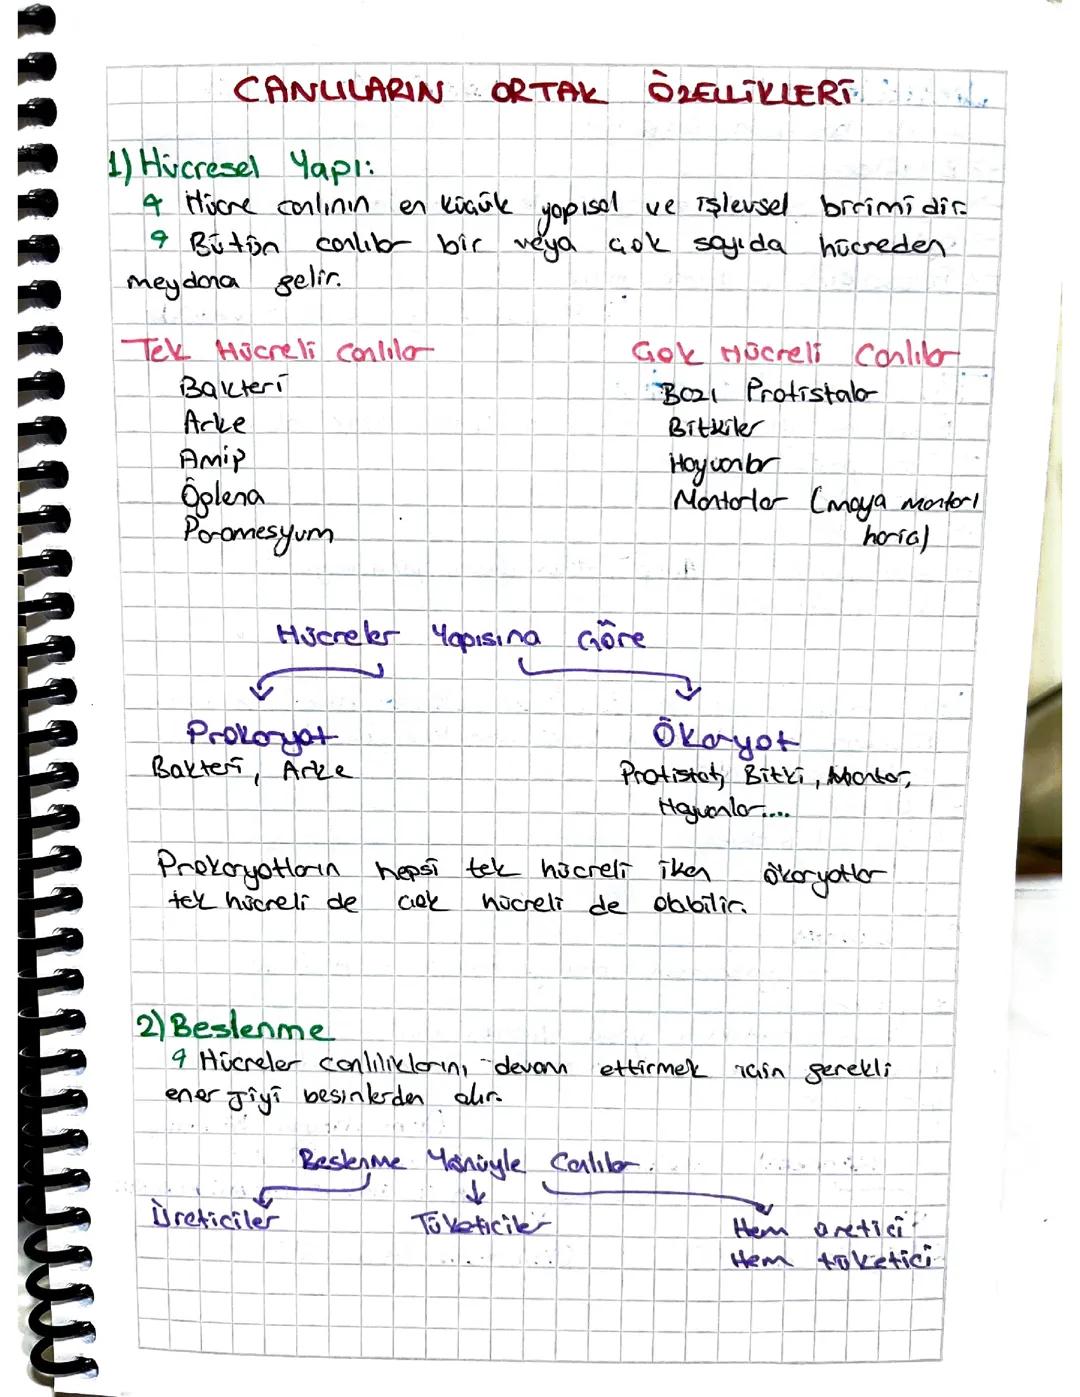 CANLILARIN ORTAK ÖZELLİKLERİ
1) Hücresel Yapı:
Hücre canlının en küçük yapısal ve işlevsel birimidir.
Bütün canlılar bir veya çok sayıda hücreden
meydana gelir.
Tek Hücreli Canlılar Çok Hücreli Canlılar
Bakteri Bazı Protistalar
Arke Bitkiler
Amip Hayvanlar
Öglena Mantarlar (maya mantarı
Paramesyum hariç)
Hücreler Yapısına Göre
Prokaryot Ökaryot
Bakteri, Arke Protista, Bitki, Mantar,
Hayvanlar....
Prokaryotların hepsi tek hücreli iken ökaryotlar
tek hücreli de çok hücreli de olabilir.
2) Beslenme
Hücreler canlılıklarını devam ettirmek için gerekli
enerjiyi besinlerden alır.
Beslenme Yönüyle Canlılar
Üreticiler Tüketiciler Hem üretici
Hem tüketici